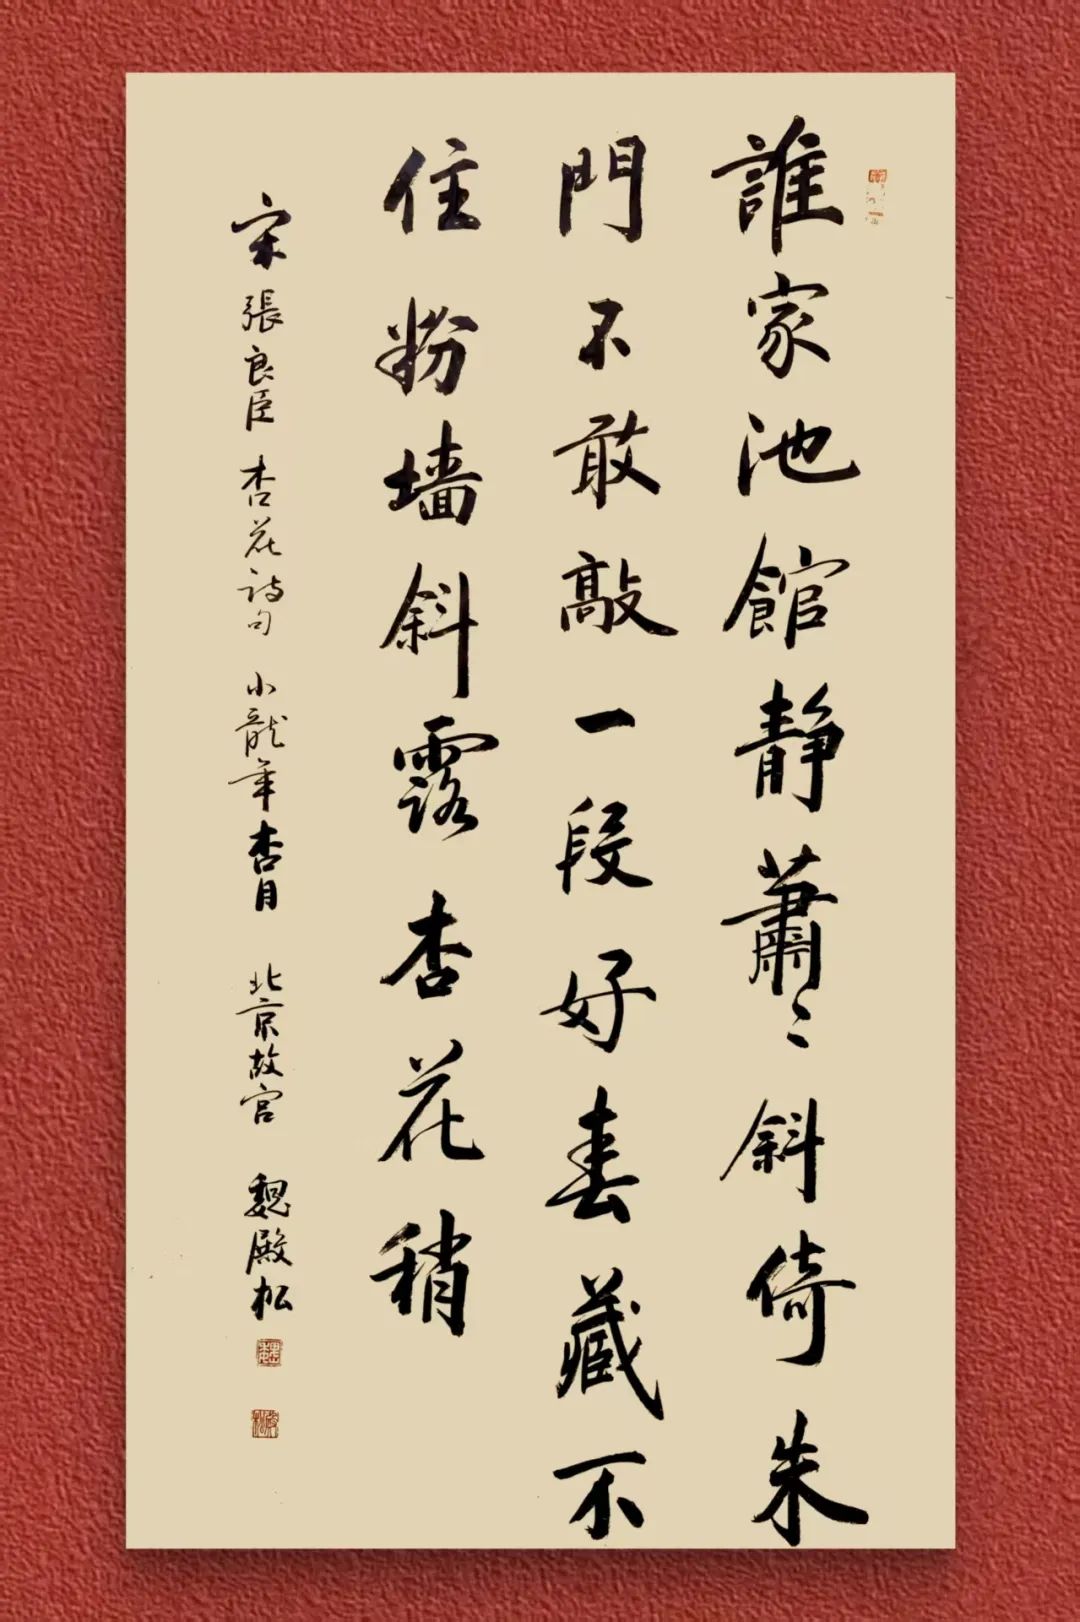 誰家池館静蕭〻斜倚朱
門不敢敲一段好春藏不
住粉墙斜露杏花稍
宋張良臣杏花詩句 小龍年杏月 北京故宫 魏殿松